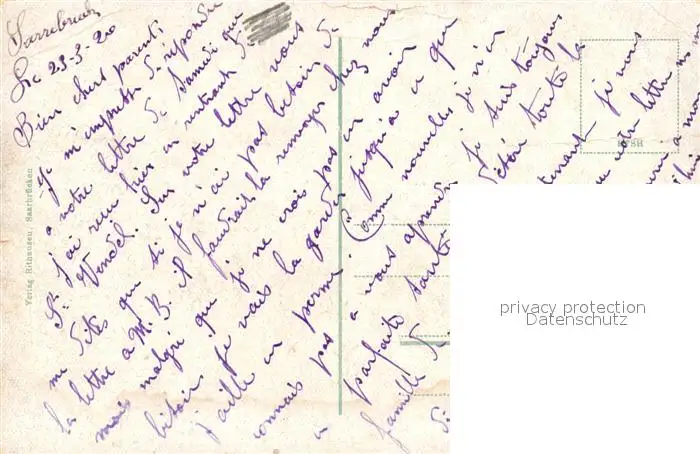 Sarrebruck
Le 23-3-20
Bien chers parents
Je m'empresse de répondre
a votre lettre de samedi que
j'ai reçu hier en rentrant de
St Wendel. Sur votre lettre vous
me dites que si je n'ai pas besoin de
la lettre a M. B. il faudrait la renvoyer chez nous
mais malgré que je ne crois pas en avoir
besoin je vais la garder jusqu'a ce que
j'aille en perme. Comme nouvelles je n'en
connais pas a vous apprendre. Je suis toujours
en parfaite santé et désire toute la
famille de
tenant je vous
votre lettre
Verlag Rithausen, Saarbrücken
privacy protection
Datenschutz